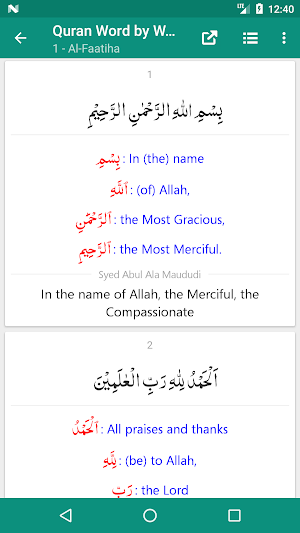 12:40
Quran Word by W...
1 - Al-Faatiha
1
بِسْمِ اللهِ الرَّحْمٰنِ الرَّحِيْمِ
بِسْمِ : In (the) name
اَللَّهِ : (of) Allah,
اَلرَّحْمٰنِ : the Most Gracious,
اَلرَّحِيمِ : the Most Merciful.
Syed Abul Ala Maududi
In the name of Allah, the Merciful, the
Compassionate
2
اَلْحَمْدُ لِلّٰهِ رَبِّ الْعٰلَمِيْنَ
اَلْحَمْدُ : All praises and thanks
لِلَّهِ : (be) to Allah,
رَبِّ : the Lord